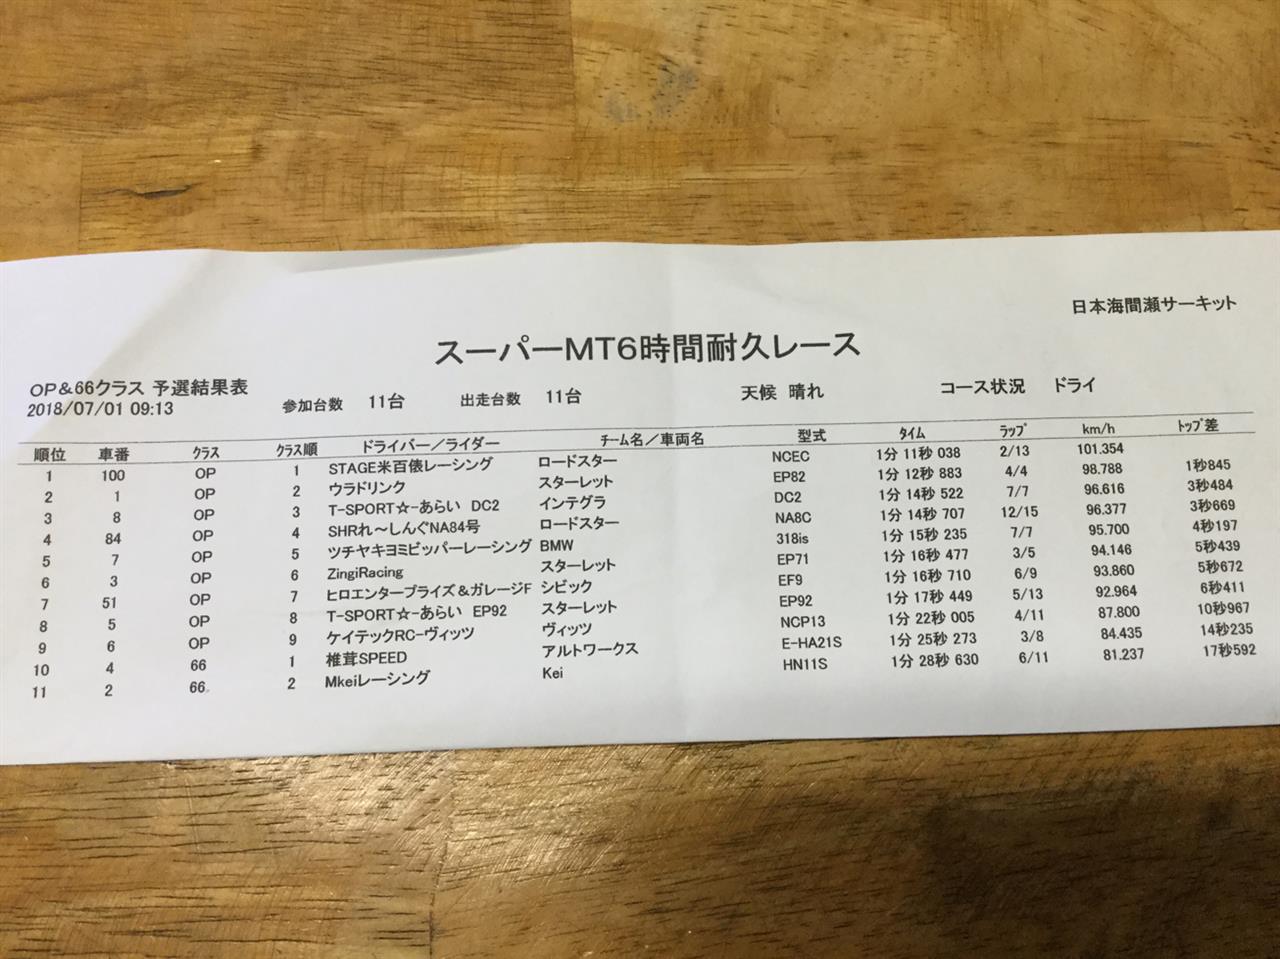 日本海間瀬サーキット
スーパーMT6時間耐久レース
OP&66クラス 予選結果表
2018/07/01 09:13 参加台数 11台 出走台数 11台 天候 晴れ コース状況 ドライ
順位 車番 クラス クラス順 ドライバー/ライダー チーム名/車両名 型式 タイム ラップ km/h トップ差
1 100 OP 1 STAGE米百俵レーシング ロードスター NCEC 1分 11秒 038 2/13 101.354
2 1 OP 2 ウラドリンク スターレット EP82 1分 12秒 883 4/4 98.788 1秒845
3 8 OP 3 T-SPORT☆-あらい DC2 インテグラ DC2 1分 14秒 522 7/7 96.616 3秒484
4 84 OP 4 SHRれ～しんぐNA84号 ロードスター NA8C 1分 14秒 707 12/15 96.377 3秒669
5 7 OP 5 ツチヤキヨミビッパーレーシング BMW 318is 1分 15秒 235 7/7 95.700 4秒197
6 3 OP 6 ZingiRacing スターレット EP71 1分 16秒 477 3/5 94.146 5秒439
7 51 OP 7 ヒロエンタープライズ&ガレージF シビック EF9 1分 16秒 710 6/9 93.860 5秒672
8 5 OP 8 T-SPORT☆-あらい EP92 スターレット EP92 1分 17秒 449 5/13 92.964 6秒411
9 6 OP 9 ケイテックRC-ヴィッツ ヴィッツ NCP13 1分 22秒 005 4/11 87.800 10秒967
10 4 66 1 椎茸SPEED アルトワークス E-HA21S 1分 25秒 273 3/8 84.435 14秒235
11 2 66 2 Mkeiレーシング Kei HN11S 1分 28秒 630 6/11 81.237 17秒592